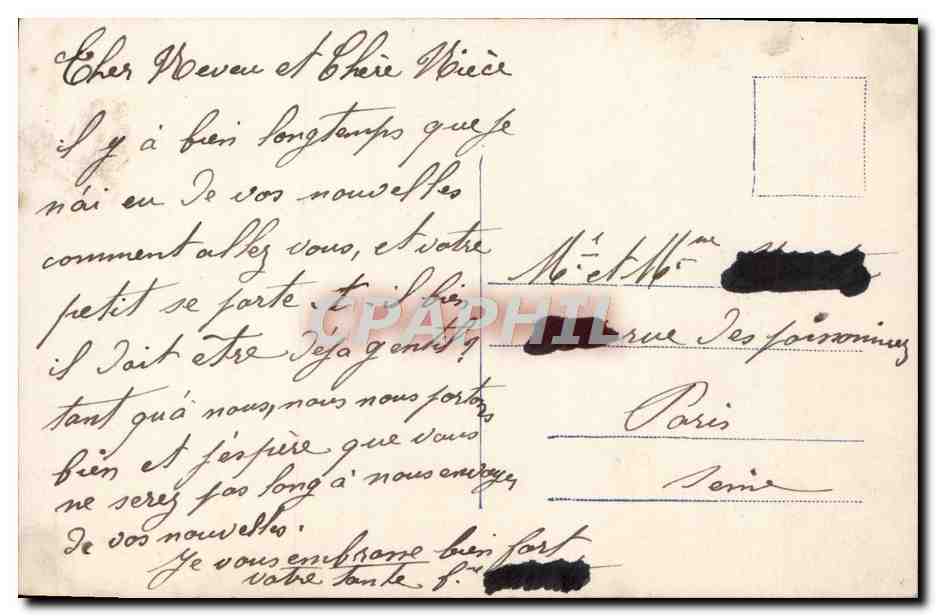 Cher Neveu et Chère Nièce
il y à bien longtemps que je
n'ai eu de vos nouvelles
comment allez vous, et votre
petit se porte t il bien
il doit etre déja gentil ?
tant qu'à nous, nous nous portons
bien et j'espère que vous
ne serez pas long à nous envoyer
de vos nouvelles.
Je vous embrasse bien fort
votre tante
Mr et Mme
rue des poissonniers
Paris
Seine
CPAPHIL